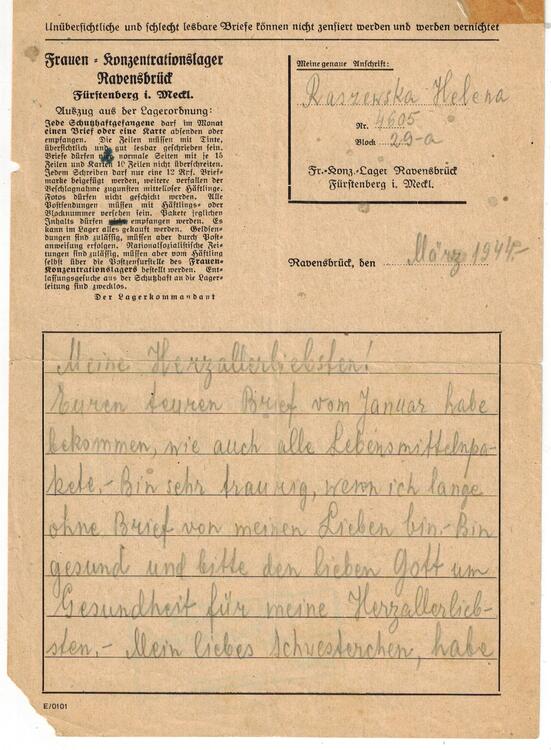 Unübersichtliche und schlecht lesbare Briefe können nicht zensiert werden und werden vernichtet
Frauen-Konzentrationslager
Ravensbrück
Fürstenberg i. Meckl.
Auszug aus der Lagerordnung:
Jede Schutzhaftgefangene darf im Monat
einen Brief oder eine Karte absenden oder
empfangen. Die Zeilen müssen mit Tinte,
übersichtlich und gut lesbar geschrieben sein.
Briefe dürfen normale Seiten mit je 15
Zeilen und Karten 10 Zeilen nicht überschreiten.
Jedem Schreiben darf nur eine 12 Rpf. Brief-
marke beigefügt werden, weitere verfallen der
Beschlagnahme zugunsten mittelloser Häftlinge.
Fotos dürfen nicht geschickt werden. Alle
Postsendungen müssen mit Häftlings- oder
Blocknummer versehen sein. Pakete jeglichen
Inhalts dürfen empfangen werden. Es
kann im Lager alles gekauft werden. Geldsen-
dungen sind zulässig, müssen aber durch Post-
anweisung erfolgen. Nationalsozialistische Zei-
tungen sind zulässig, müssen aber vom Häftling
selbst über die Postzensurstelle des Frauen-
Konzentrationslagers bestellt werden. Ent-
lassungsgesuche aus der Schutzhaft an die Lager-
leitung sind zwecklos.
Der Lagerkommandant
Meine genaue Anschrift:
Raszewska Helena
Nr. 4605
Block 29-a
Fr.-Konz.-Lager Ravensbrück
Fürstenberg i. Meckl.
Ravensbrück, den März 1944.-
Meine Herzallerliebsten!
Euren teuren Brief vom Januar habe
bekommen, wie auch alle Lebensmittelnpa-
kete.- Bin sehr traurig, wenn ich lange
ohne Brief von meinen Lieben bin.- Bin
gesund und bitte den lieben Gott um
Gesundheit für meine Herzallerlieb-
sten.- Mein liebes Schwesterchen, habe
E/0101